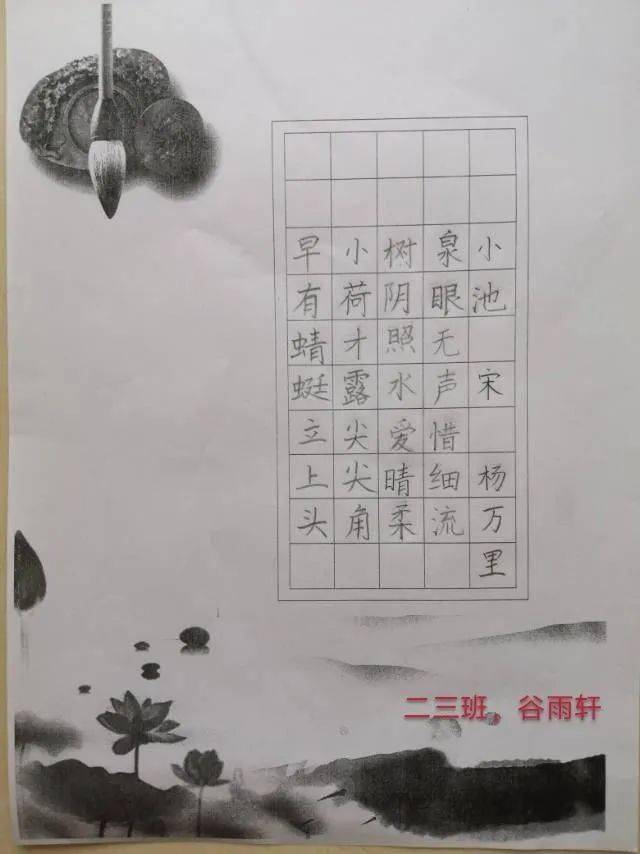 小池 宋 杨万里
泉眼无声惜细流
树阴照水爱晴柔
小荷才露尖尖角
早有蜻蜓立上头
二三班，谷雨轩